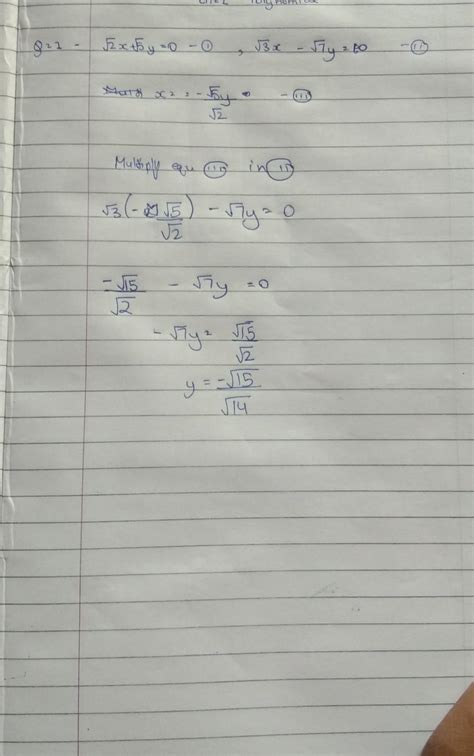 Q=1 - √2x+√5y=0 - (i) , √3x - √7y=0 - (ii)
x = -√5y/√2 - (iii)
Multiply equ (iii) in (ii)
√3(-√5/√2) - √7y = 0
-√15/√2 - √7y = 0
-√7y = √15/√2
y = -√15/√14